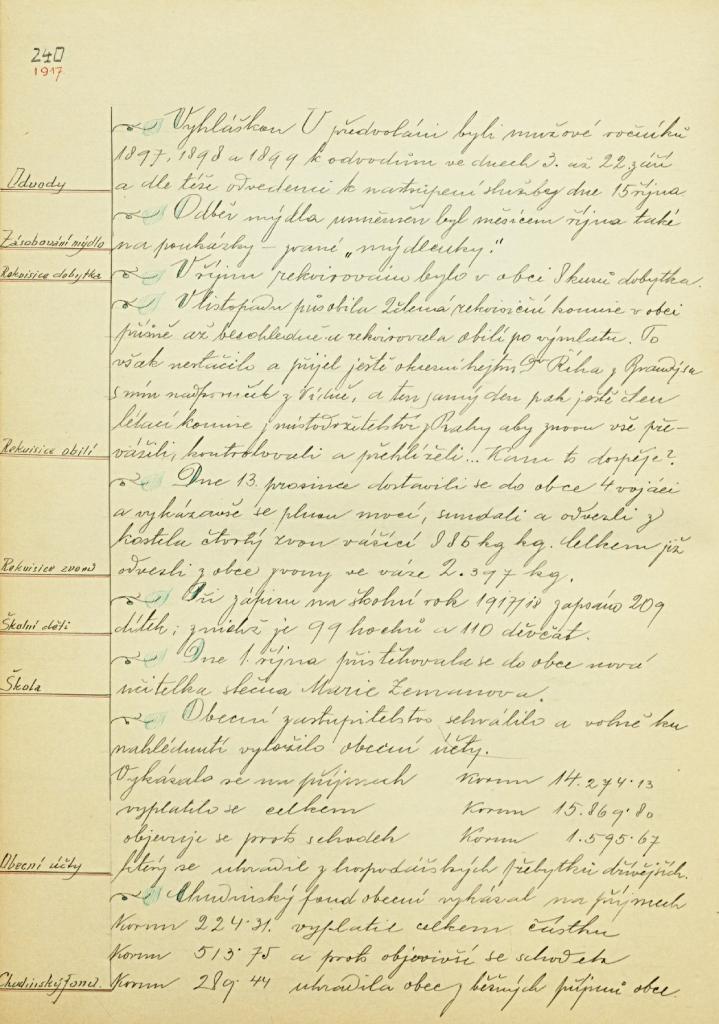 240
1917
Vyhláškou U předvoláni byli mužové ročníků
1897, 1898 a 1899 k odvodům ve dnech 3. až 22 září
Odvody
a dle téže odvedeni k nastoupení služby dne 15 října
Odběr mýdla usměrněn byl měsícem října také
Zásobování mýdlo
na poukázky – zvané „mýdlenky."
Rekvisice dobytka
V říjnu rekvirováno bylo v obci 8 kusů dobytka.
V listopadu působila 2členná rekvisiční komise v obci
přísně až bezohledně a rekvirovala obilí po výmlatu. To
však nestačilo a přijel ještě okresní hejtm. Dr Říha z Brandýsa
s ním nadporučík z Vídně, a ten samý den pak ještě člen
létací komise z místodržitelství z Prahy aby znovu vše pře-
Rekvisice obilí
vážili, kontrolovali a přehlíželi... Kam to dospěje?
Dne 13. prosince dostavili se do obce 4 vojáci
a vykázavše se plnou mocí, sundali a odvezli z
kostela čtvrtý zvon vážící 885 kg kg. Celkem již
Rekvisice zvonů
odvezli z obce zvony ve váze 2.397 kg.
Při zápisu na školní rok 1917/18 zapsáno 209
Školní děti
dítek; z nichž je 99 hochů a 110 děvčat.
Dne 1. října přistěhovala se do obce nová
Škola
učitelka slečna Marie Zemanova.
Obecní zastupitelstvo schválilo a volně ku
nahlédnutí vyložilo obecní účty.
Vykázalo se na příjmech Korun 14.274·13
vyplatilo se celkem Korun 15.869·80
objevuje se proto schodek Korun 1.595·67
Obecní účty
který se uhradil z hospodářských přebytků dřívějších.
Chudinský fond obecní vykázal na příjmech
Korun 224·31. vyplatil celkem částku
Korun 513·75 a proto objevivší se schodek
Chudinský fond.
Korun 289·44 uhradila obec z běžných příjmů obce.